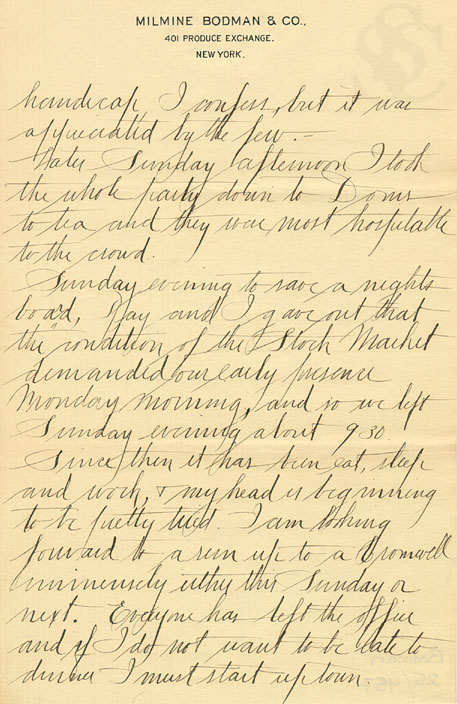 MILMINE BODMAN & CO.,
401 PRODUCE EXCHANGE,
NEW YORK.
handicap, I confess, but it was
appreciated by the few. —
Later Sunday afternoon I took
the whole party down to Doms
to tea and they were most hospitable
to the crowd.
Sunday evening to save a nights
board, Ray and I gave out that
the condition of the Stock Market
demanded our early presence
Monday morning, and so we left
Sunday evening about 9 30.
Since then it has been eat, sleep
and work, & my head is beginning
to be pretty tired. I am looking
forward to a run up to a Cromwell
immensely either this Sunday or
next. Everyone has left the office
and if I do not want to be late to
dinner I must start up town.